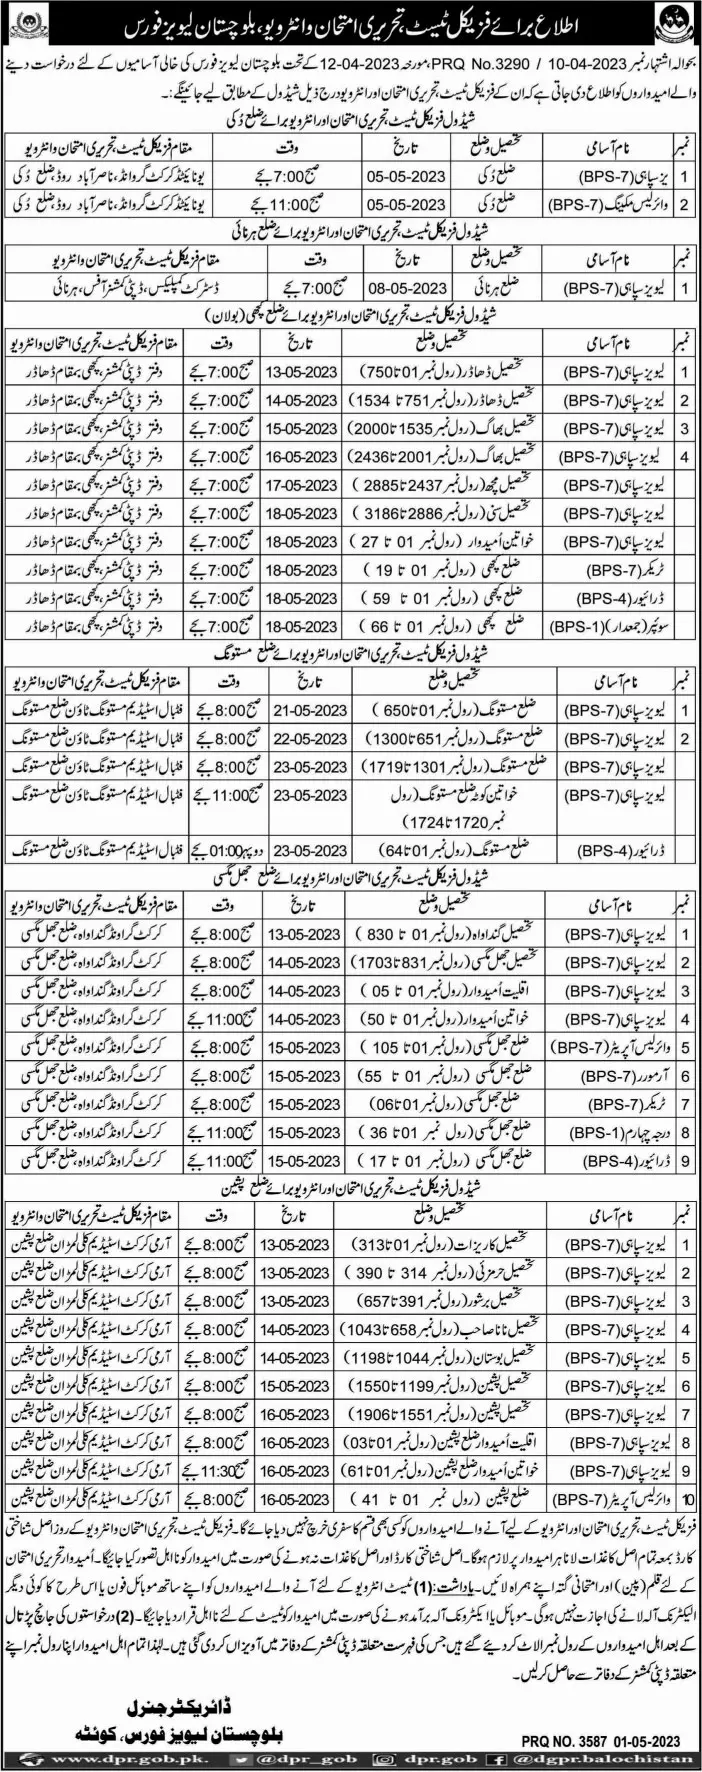 اطلاع برائے فزیکل ٹیسٹ، تحریری امتحان و انٹرویو، بلوچستان لیویز فورس
بحوالہ اشتہار نمبر PRQ No.3290 / 10-04-2023، مورخہ 2023-04-12 کے تحت بلوچستان لیویز فورس کی خالی آسامیوں کے لئے درخواست دینے
والے امیدواروں کو اطلاع دی جاتی ہے کہ ان کے فزیکل ٹیسٹ، تحریری امتحان اور انٹرویو درج ذیل شیڈول کے مطابق لیے جائینگے:۔
شیڈول فزیکل ٹیسٹ، تحریری امتحان اور انٹرویو برائے ضلع دُکی
نمبر نام آسامی تحصیل و ضلع تاریخ وقت مقام فزیکل ٹیسٹ، تحریری امتحان و انٹرویو
1 یز سپاہی (BPS-7) ضلع دُکی 05-05-2023 صبح 7:00 بجے یونائیٹڈ کرکٹ گروانڈ، ناصر آباد روڈ، ضلع دُکی
2 وائرلیس مکینک (BPS-7) ضلع دُکی 05-05-2023 صبح 11:00 بجے یونائیٹڈ کرکٹ گروانڈ، ناصر آباد روڈ، ضلع دُکی
شیڈول فزیکل ٹیسٹ، تحریری امتحان اور انٹرویو برائے ضلع ہرنائی
نمبر نام آسامی تحصیل و ضلع تاریخ وقت مقام فزیکل ٹیسٹ، تحریری امتحان و انٹرویو
1 لیویز سپاہی (BPS-7) ضلع ہرنائی 08-05-2023 صبح 7:00 بجے ڈسٹرکٹ کمپلیکس، ڈپٹی کمشنر آفس، ہرنائی
شیڈول فزیکل ٹیسٹ، تحریری امتحان اور انٹرویو برائے ضلع کچھی (بولان)
نمبر نام آسامی تحصیل و ضلع تاریخ وقت مقام فزیکل ٹیسٹ، تحریری امتحان و انٹرویو
1 لیویز سپاہی (BPS-7) تحصیل ڈھاڈر (رول نمبر 01 تا 750) 13-05-2023 صبح 7:00 بجے دفتر ڈپٹی کمشنر، کچھی بمقام ڈھاڈر
2 لیویز سپاہی (BPS-7) تحصیل ڈھاڈر (رول نمبر 751 تا 1534) 14-05-2023 صبح 7:00 بجے دفتر ڈپٹی کمشنر، کچھی بمقام ڈھاڈر
3 لیویز سپاہی (BPS-7) تحصیل بھاگ (رول نمبر 1535 تا 2000) 15-05-2023 صبح 7:00 بجے دفتر ڈپٹی کمشنر، کچھی بمقام ڈھاڈر
4 لیویز سپاہی (BPS-7) تحصیل بھاگ (رول نمبر 2001 تا 2436) 16-05-2023 صبح 7:00 بجے دفتر ڈپٹی کمشنر، کچھی بمقام ڈھاڈر
لیویز سپاہی (BPS-7) تحصیل مچھ (رول نمبر 2437 تا 2885) 17-05-2023 صبح 7:00 بجے دفتر ڈپٹی کمشنر، کچھی بمقام ڈھاڈر
لیویز سپاہی (BPS-7) تحصیل سنی (رول نمبر 2886 تا 3186) 18-05-2023 صبح 7:00 بجے دفتر ڈپٹی کمشنر، کچھی بمقام ڈھاڈر
لیویز سپاہی (BPS-7) خواتین اُمیدوار (رول نمبر 01 تا 27) 18-05-2023 صبح 7:00 بجے دفتر ڈپٹی کمشنر، کچھی بمقام ڈھاڈر
ٹریکر (BPS-7) ضلع کچھی (رول نمبر 01 تا 19) 18-05-2023 صبح 7:00 بجے دفتر ڈپٹی کمشنر، کچھی بمقام ڈھاڈر
ڈرائیور (BPS-4) ضلع کچھی (رول نمبر 01 تا 59) 18-05-2023 صبح 7:00 بجے دفتر ڈپٹی کمشنر، کچھی بمقام ڈھاڈر
سوئپر (جمعدار) (BPS-1) ضلع کچھی (رول نمبر 01 تا 66) 18-05-2023 صبح 7:00 بجے دفتر ڈپٹی کمشنر، کچھی بمقام ڈھاڈر
شیڈول فزیکل ٹیسٹ، تحریری امتحان اور انٹرویو برائے ضلع مستونگ
نمبر نام آسامی تحصیل و ضلع تاریخ وقت مقام فزیکل ٹیسٹ، تحریری امتحان و انٹرویو
1 لیویز سپاہی (BPS-7) ضلع مستونگ (رول نمبر 01 تا 650) 21-05-2023 صبح 8:00 بجے فٹبال اسٹیڈیم مستونگ ٹاؤن ضلع مستونگ
2 لیویز سپاہی (BPS-7) ضلع مستونگ (رول نمبر 651 تا 1300) 22-05-2023 صبح 8:00 بجے فٹبال اسٹیڈیم مستونگ ٹاؤن ضلع مستونگ
لیویز سپاہی (BPS-7) ضلع مستونگ (رول نمبر 1301 تا 1719) 23-05-2023 صبح 8:00 بجے فٹبال اسٹیڈیم مستونگ ٹاؤن ضلع مستونگ
لیویز سپاہی (BPS-7) خواتین کوٹہ ضلع مستونگ (رول 23-05-2023 صبح 11:00 بجے فٹبال اسٹیڈیم مستونگ ٹاؤن ضلع مستونگ
نمبر 1720 تا 1724)
ڈرائیور (BPS-4) ضلع مستونگ (رول نمبر 01 تا 64) 23-05-2023 دوپہر 01:00 بجے فٹبال اسٹیڈیم مستونگ ٹاؤن ضلع مستونگ
شیڈول فزیکل ٹیسٹ، تحریری امتحان اور انٹرویو برائے ضلع جھل مگسی
نمبر نام آسامی تحصیل و ضلع تاریخ وقت مقام فزیکل ٹیسٹ، تحریری امتحان و انٹرویو
1 لیویز سپاہی (BPS-7) تحصیل گنداواہ (رول نمبر 01 تا 830) 13-05-2023 صبح 8:00 بجے کرکٹ گراونڈ گنداواہ، ضلع جھل مگسی
2 لیویز سپاہی (BPS-7) تحصیل جھل مگسی (رول نمبر 831 تا 1703) 14-05-2023 صبح 8:00 بجے کرکٹ گراونڈ گنداواہ، ضلع جھل مگسی
3 لیویز سپاہی (BPS-7) اقلیت اُمیدوار (رول نمبر 01 تا 05) 14-05-2023 صبح 8:00 بجے کرکٹ گراونڈ گنداواہ، ضلع جھل مگسی
4 لیویز سپاہی (BPS-7) خواتین اُمیدوار (رول نمبر 01 تا 50) 14-05-2023 صبح 11:00 بجے کرکٹ گراونڈ گنداواہ، ضلع جھل مگسی
5 وائرلیس آپریٹر (BPS-7) ضلع جھل مگسی (رول نمبر 01 تا 105) 15-05-2023 صبح 8:00 بجے کرکٹ گراونڈ گنداواہ، ضلع جھل مگسی
6 آرمورر (BPS-7) ضلع جھل مگسی (رول نمبر 01 تا 55) 15-05-2023 صبح 8:00 بجے کرکٹ گراونڈ گنداواہ، ضلع جھل مگسی
7 ٹریکر (BPS-7) ضلع جھل مگسی (رول نمبر 01 تا 06) 15-05-2023 صبح 8:00 بجے کرکٹ گراونڈ گنداواہ، ضلع جھل مگسی
8 درجہ چہارم (BPS-1) ضلع جھل مگسی (رول نمبر 01 تا 36) 15-05-2023 صبح 11:00 بجے کرکٹ گراونڈ گنداواہ، ضلع جھل مگسی
9 ڈرائیور (BPS-4) ضلع جھل مگسی (رول نمبر 01 تا 17) 15-05-2023 صبح 11:00 بجے کرکٹ گراونڈ گنداواہ، ضلع جھل مگسی
شیڈول فزیکل ٹیسٹ، تحریری امتحان اور انٹرویو برائے ضلع پشین
نمبر نام آسامی تحصیل و ضلع تاریخ وقت مقام فزیکل ٹیسٹ، تحریری امتحان و انٹرویو
1 لیویز سپاہی (BPS-7) تحصیل کاریزات (رول نمبر 01 تا 313) 13-05-2023 صبح 8:00 بجے آرمی کرکٹ اسٹیڈیم کلی لمڑان ضلع پشین
2 لیویز سپاہی (BPS-7) تحصیل حرمزئی (رول نمبر 314 تا 390) 13-05-2023 صبح 8:00 بجے آرمی کرکٹ اسٹیڈیم کلی لمڑان ضلع پشین
3 لیویز سپاہی (BPS-7) تحصیل برشور (رول نمبر 391 تا 657) 13-05-2023 صبح 8:00 بجے آرمی کرکٹ اسٹیڈیم کلی لمڑان ضلع پشین
4 لیویز سپاہی (BPS-7) تحصیل نانا صاحب (رول نمبر 658 تا 1043) 14-05-2023 صبح 8:00 بجے آرمی کرکٹ اسٹیڈیم کلی لمڑان ضلع پشین
5 لیویز سپاہی (BPS-7) تحصیل بوستان (رول نمبر 1044 تا 1198) 14-05-2023 صبح 8:00 بجے آرمی کرکٹ اسٹیڈیم کلی لمڑان ضلع پشین
6 لیویز سپاہی (BPS-7) تحصیل پشین (رول نمبر 1199 تا 1550) 15-05-2023 صبح 8:00 بجے آرمی کرکٹ اسٹیڈیم کلی لمڑان ضلع پشین
7 لیویز سپاہی (BPS-7) تحصیل پشین (رول نمبر 1551 تا 1906) 16-05-2023 صبح 8:00 بجے آرمی کرکٹ اسٹیڈیم کلی لمڑان ضلع پشین
8 لیویز سپاہی (BPS-7) اقلیت اُمیدوار ضلع پشین (رول نمبر 01 تا 03) 16-05-2023 صبح 8:00 بجے آرمی کرکٹ اسٹیڈیم کلی لمڑان ضلع پشین
9 لیویز سپاہی (BPS-7) خواتین اُمیدوار ضلع پشین (رول نمبر 01 تا 61) 16-05-2023 صبح 11:30 بجے آرمی کرکٹ اسٹیڈیم کلی لمڑان ضلع پشین
10 وائرلیس آپریٹر (BPS-7) ضلع پشین (رول نمبر 01 تا 41) 16-05-2023 صبح 8:00 بجے آرمی کرکٹ اسٹیڈیم کلی لمڑان ضلع پشین
فزیکل ٹیسٹ، تحریری امتحان اور انٹرویو کے لیے آنے والے امیدواروں کو کسی بھی قسم کا سفری خرچ نہیں دیا جائے گا۔ فزیکل ٹیسٹ، تحریری امتحان و انٹرویو کے روز اصل شناختی
کارڈ بمعہ تمام اصل کاغذات لانا ہر امیدوار پر لازم ہوگا۔ اصل شناختی کارڈ اور اصل کاغذات نہ ہونے کی صورت میں امیدوار کو نا اہل تصور کیا جائیگا۔ اُمیدوار تحریری امتحان
کے لئے قلم (پین) اور امتحانی گتہ اپنے ہمراہ لائیں۔ یاداشت: (1) ٹیسٹ انٹرویو کے لئے آنے والے امیدواروں کو اپنے ساتھ موبائل فون یا اس طرح کا کوئی دیگر
الیکٹرانک آلہ لانے کی اجازت نہیں ہوگی۔ موبائل یا الیکٹرونک آلہ برآمد ہونے کی صورت میں امیدوار کو ٹیسٹ کے لئے نا اہل قرار دیا جائیگا۔ (2) درخواستوں کی جانچ پڑتال
کے بعد اہل امیدواروں کے رول نمبر الاٹ کر دیئے گئے ہیں جس کی فہرست متعلقہ ڈپٹی کمشنر کے دفاتر میں آویزاں کر دی گئی ہیں۔ لہٰذا تمام اہل امیدوار اپنا رول نمبر اپنے
متعلقہ ڈپٹی کمشنر کے دفاتر سے حاصل کر لیں۔
ڈائریکٹر جنرل
بلوچستان لیویز فورس، کوئٹہ
PRQ NO. 3587 01-05-2023
www.dpr.gob.pk. @dpr_gob dpr.gob @dgpr.balochistan